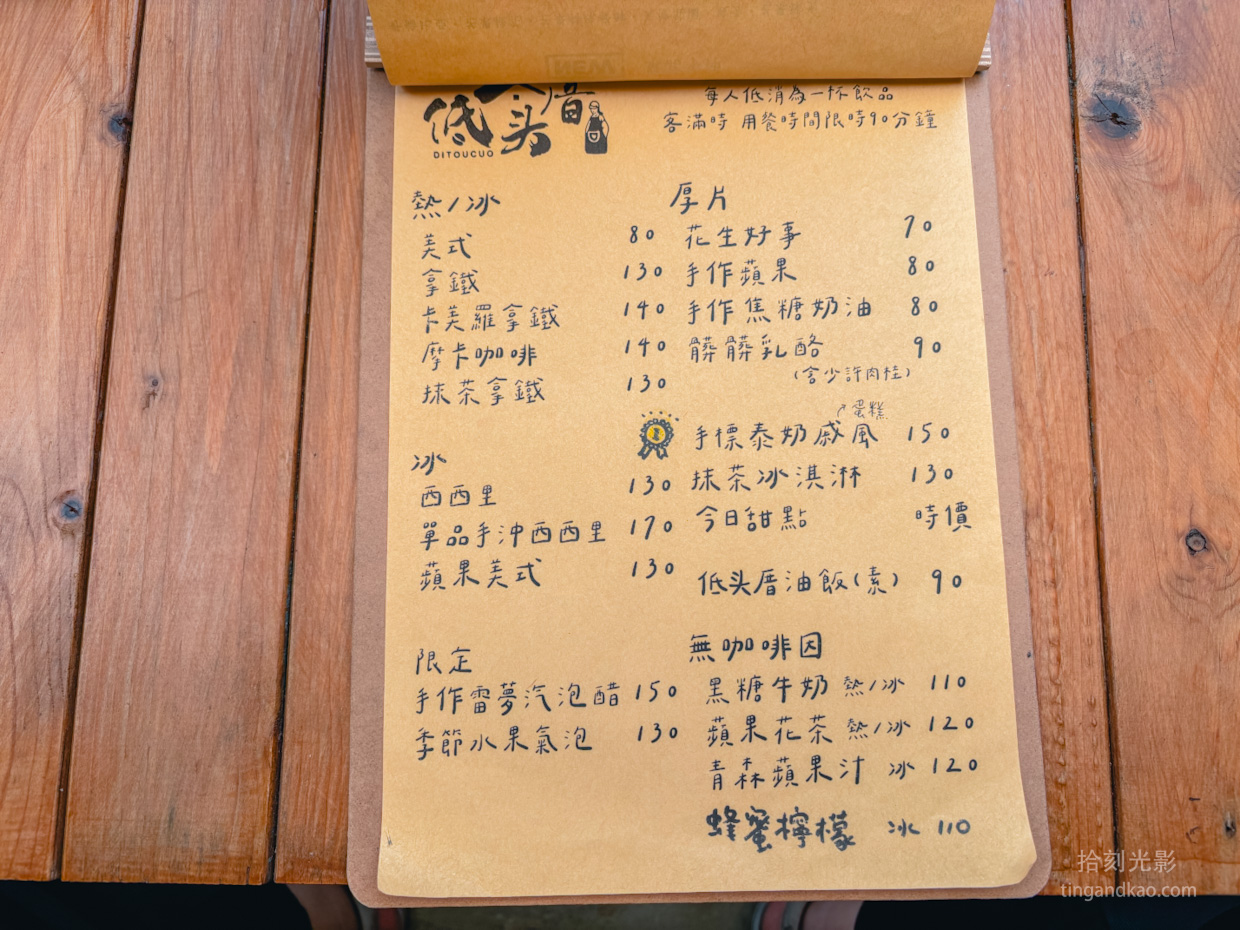 低头厝
DITOUCUO
每人低消為一杯飲品
客滿時 用餐時間限時90分鐘
熱/冰
美式 80
拿鐵 130
卡美羅拿鐵 140
摩卡咖啡 140
抹茶拿鐵 130
冰
西西里 130
單品手沖西西里 170
蘋果美式 130
限定
手作雷夢汽泡醋 150
季節水果氣泡 130
厚片
花生好事 70
手作蘋果 80
手作焦糖奶油 80
髒髒乳酪 90
(含少許肉桂)
蛋糕
手標泰奶戚風 150
抹茶冰淇淋 130
今日甜點 時價
低头厝油飯(素) 90
無咖啡因
黑糖牛奶 熱/冰 110
蘋果花茶 熱/冰 120
青森蘋果汁 冰 120
蜂蜜檸檬 冰 110
拾刻光影
tingandkao.com